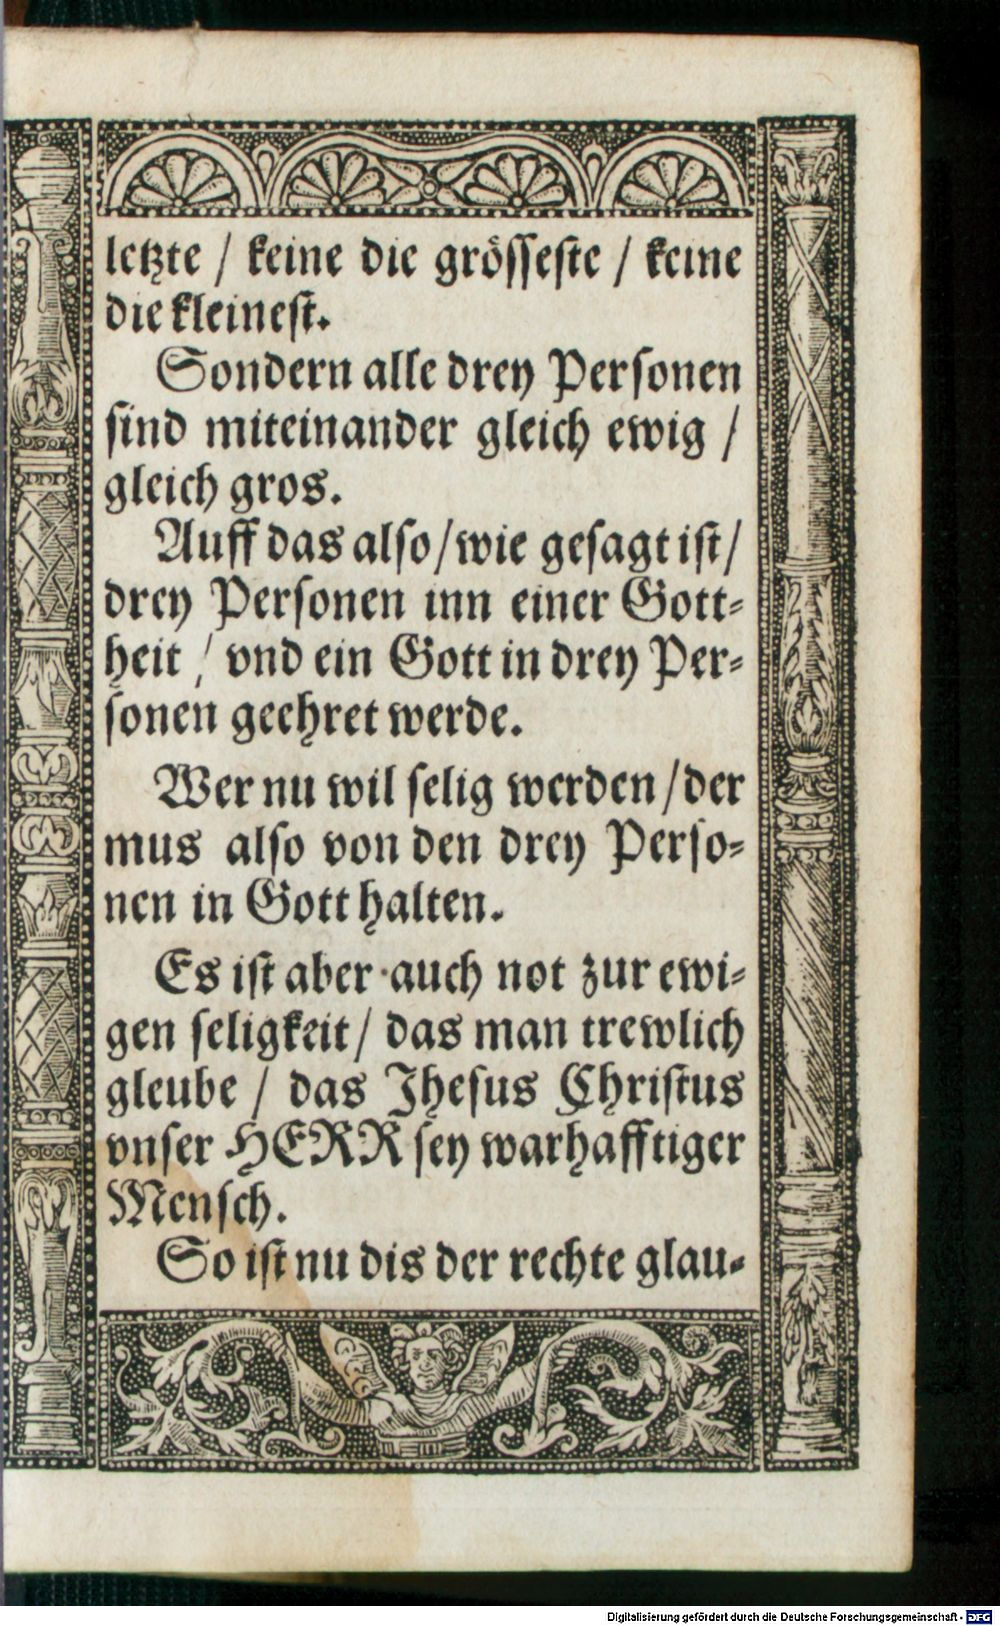 letzte / keine die grösseste / keine
die kleinest.
Sondern alle drey Personen
sind miteinander gleich ewig /
gleich gros.
Auff das also / wie gesagt ist /
drey Personen inn einer Gott-
heit / vnd ein Gott in drey Per-
sonen geehret werde.
Wer nu wil selig werden / der
mus also von den drey Perso-
nen in Gott halten.
Es ist aber auch not zur ewi-
gen seligkeit / das man trewlich
gleube / das Jhesus Christus
vnser HERR sey warhafftiger
Mensch.
So ist nu dis der rechte glau-
Digitalisierung gefördert durch die Deutsche Forschungsgemeinschaft - DFG